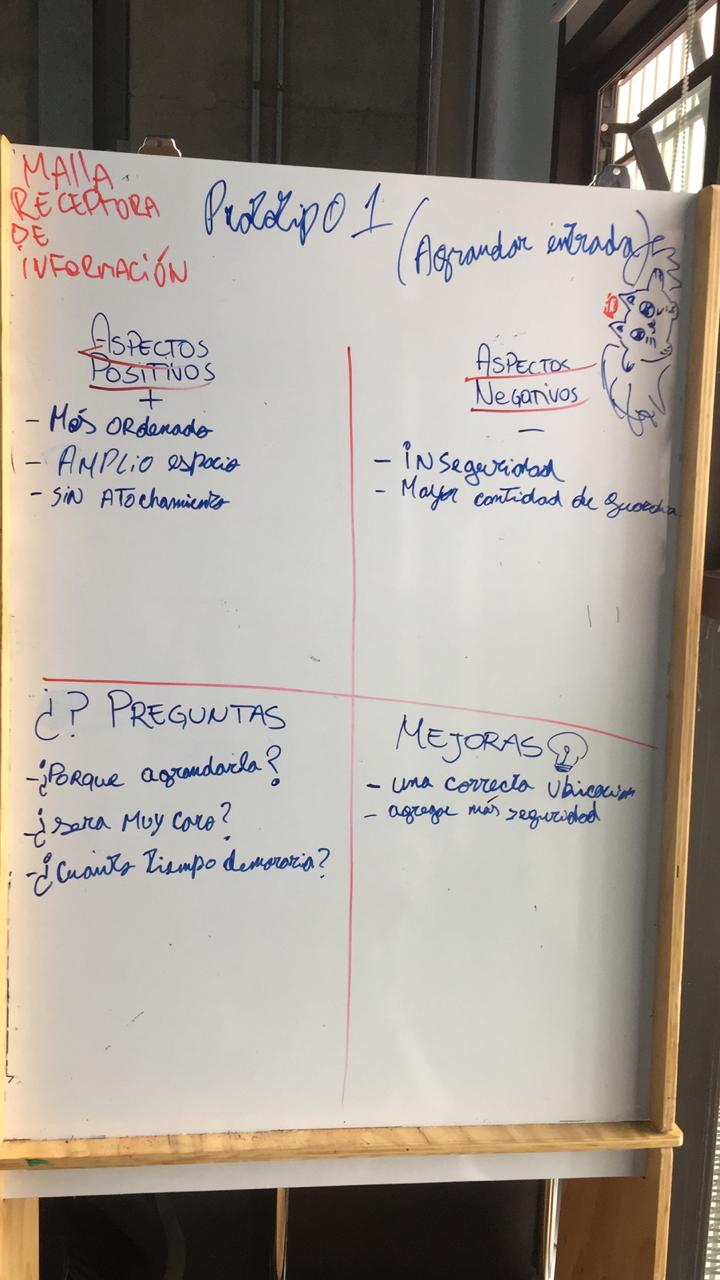 MAllA
RECEPTORA
DE
INFORMACIÓN
Prototipo 1
(Agrandar entrada)
ASPECTOS
POSITIVOS
+
- Más ORdenado
- AMPLIO espacio
- SiN ATOchamiento
ASPECTOS
NEgativos
-
- iNSeguridad
- Mayor cantidad de guardia
¿? PREGUNTAS
-¿PORQUE agrandarla?
-¿sera MUY caro?
-¿Cuánto tiempo demoraria?
MEJORAS
- una correcta ubicacion
- agregar más seguridad